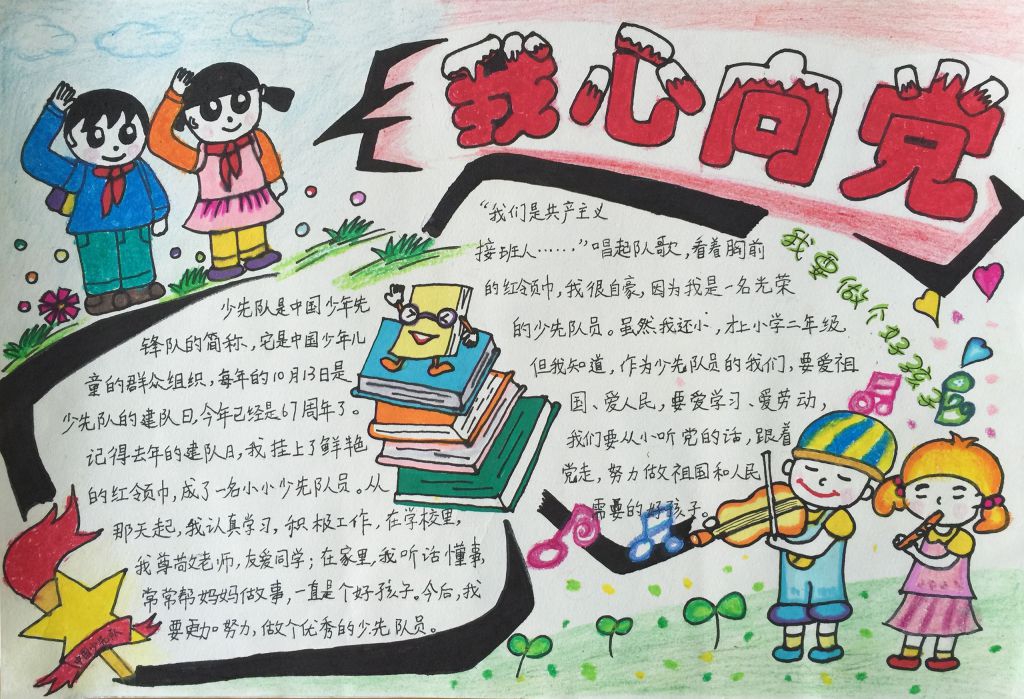 我心向党
“我们是共产主义
接班人……”唱起队歌，看着胸前
的红领巾，我很自豪，因为我是一名光荣
的少先队员。虽然我还小，才上小学二年级
但我知道，作为少先队员的我们，要爱祖
国、爱人民，要爱学习、爱劳动，
我们要从小听党的话，跟着
党走，努力做祖国和人民
需要的好孩子。
我要做个好孩子
少先队是中国少年先
锋队的简称，它是中国少年儿
童的群众组织，每年的10月13日是
少先队的建队日，今年已经是67周年了。
记得去年的建队日，我挂上了鲜艳
的红领巾，成了一名小小少先队员。从
那天起，我认真学习，积极工作，在学校里，
我尊敬老师，友爱同学；在家里，我听话懂事，
常常帮妈妈做事，一直是个好孩子。今后，我
要更加努力，做个优秀的少先队员。
中国少先队